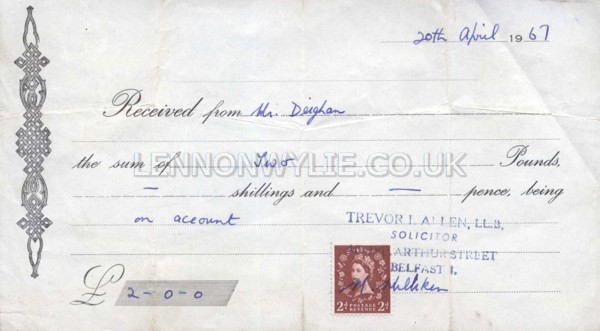 20th April 1967
Received from Mr. Deighan
LENNONWYLIE.CO.UK
the sum of Two Pounds,
— shillings and — pence, being
on account
TREVOR I. ALLEN, LL.B,
SOLICITOR
ARTHUR STREET
BELFAST 1.
£ 2-0-0
2d 2d
POSTAGE
REVENUE